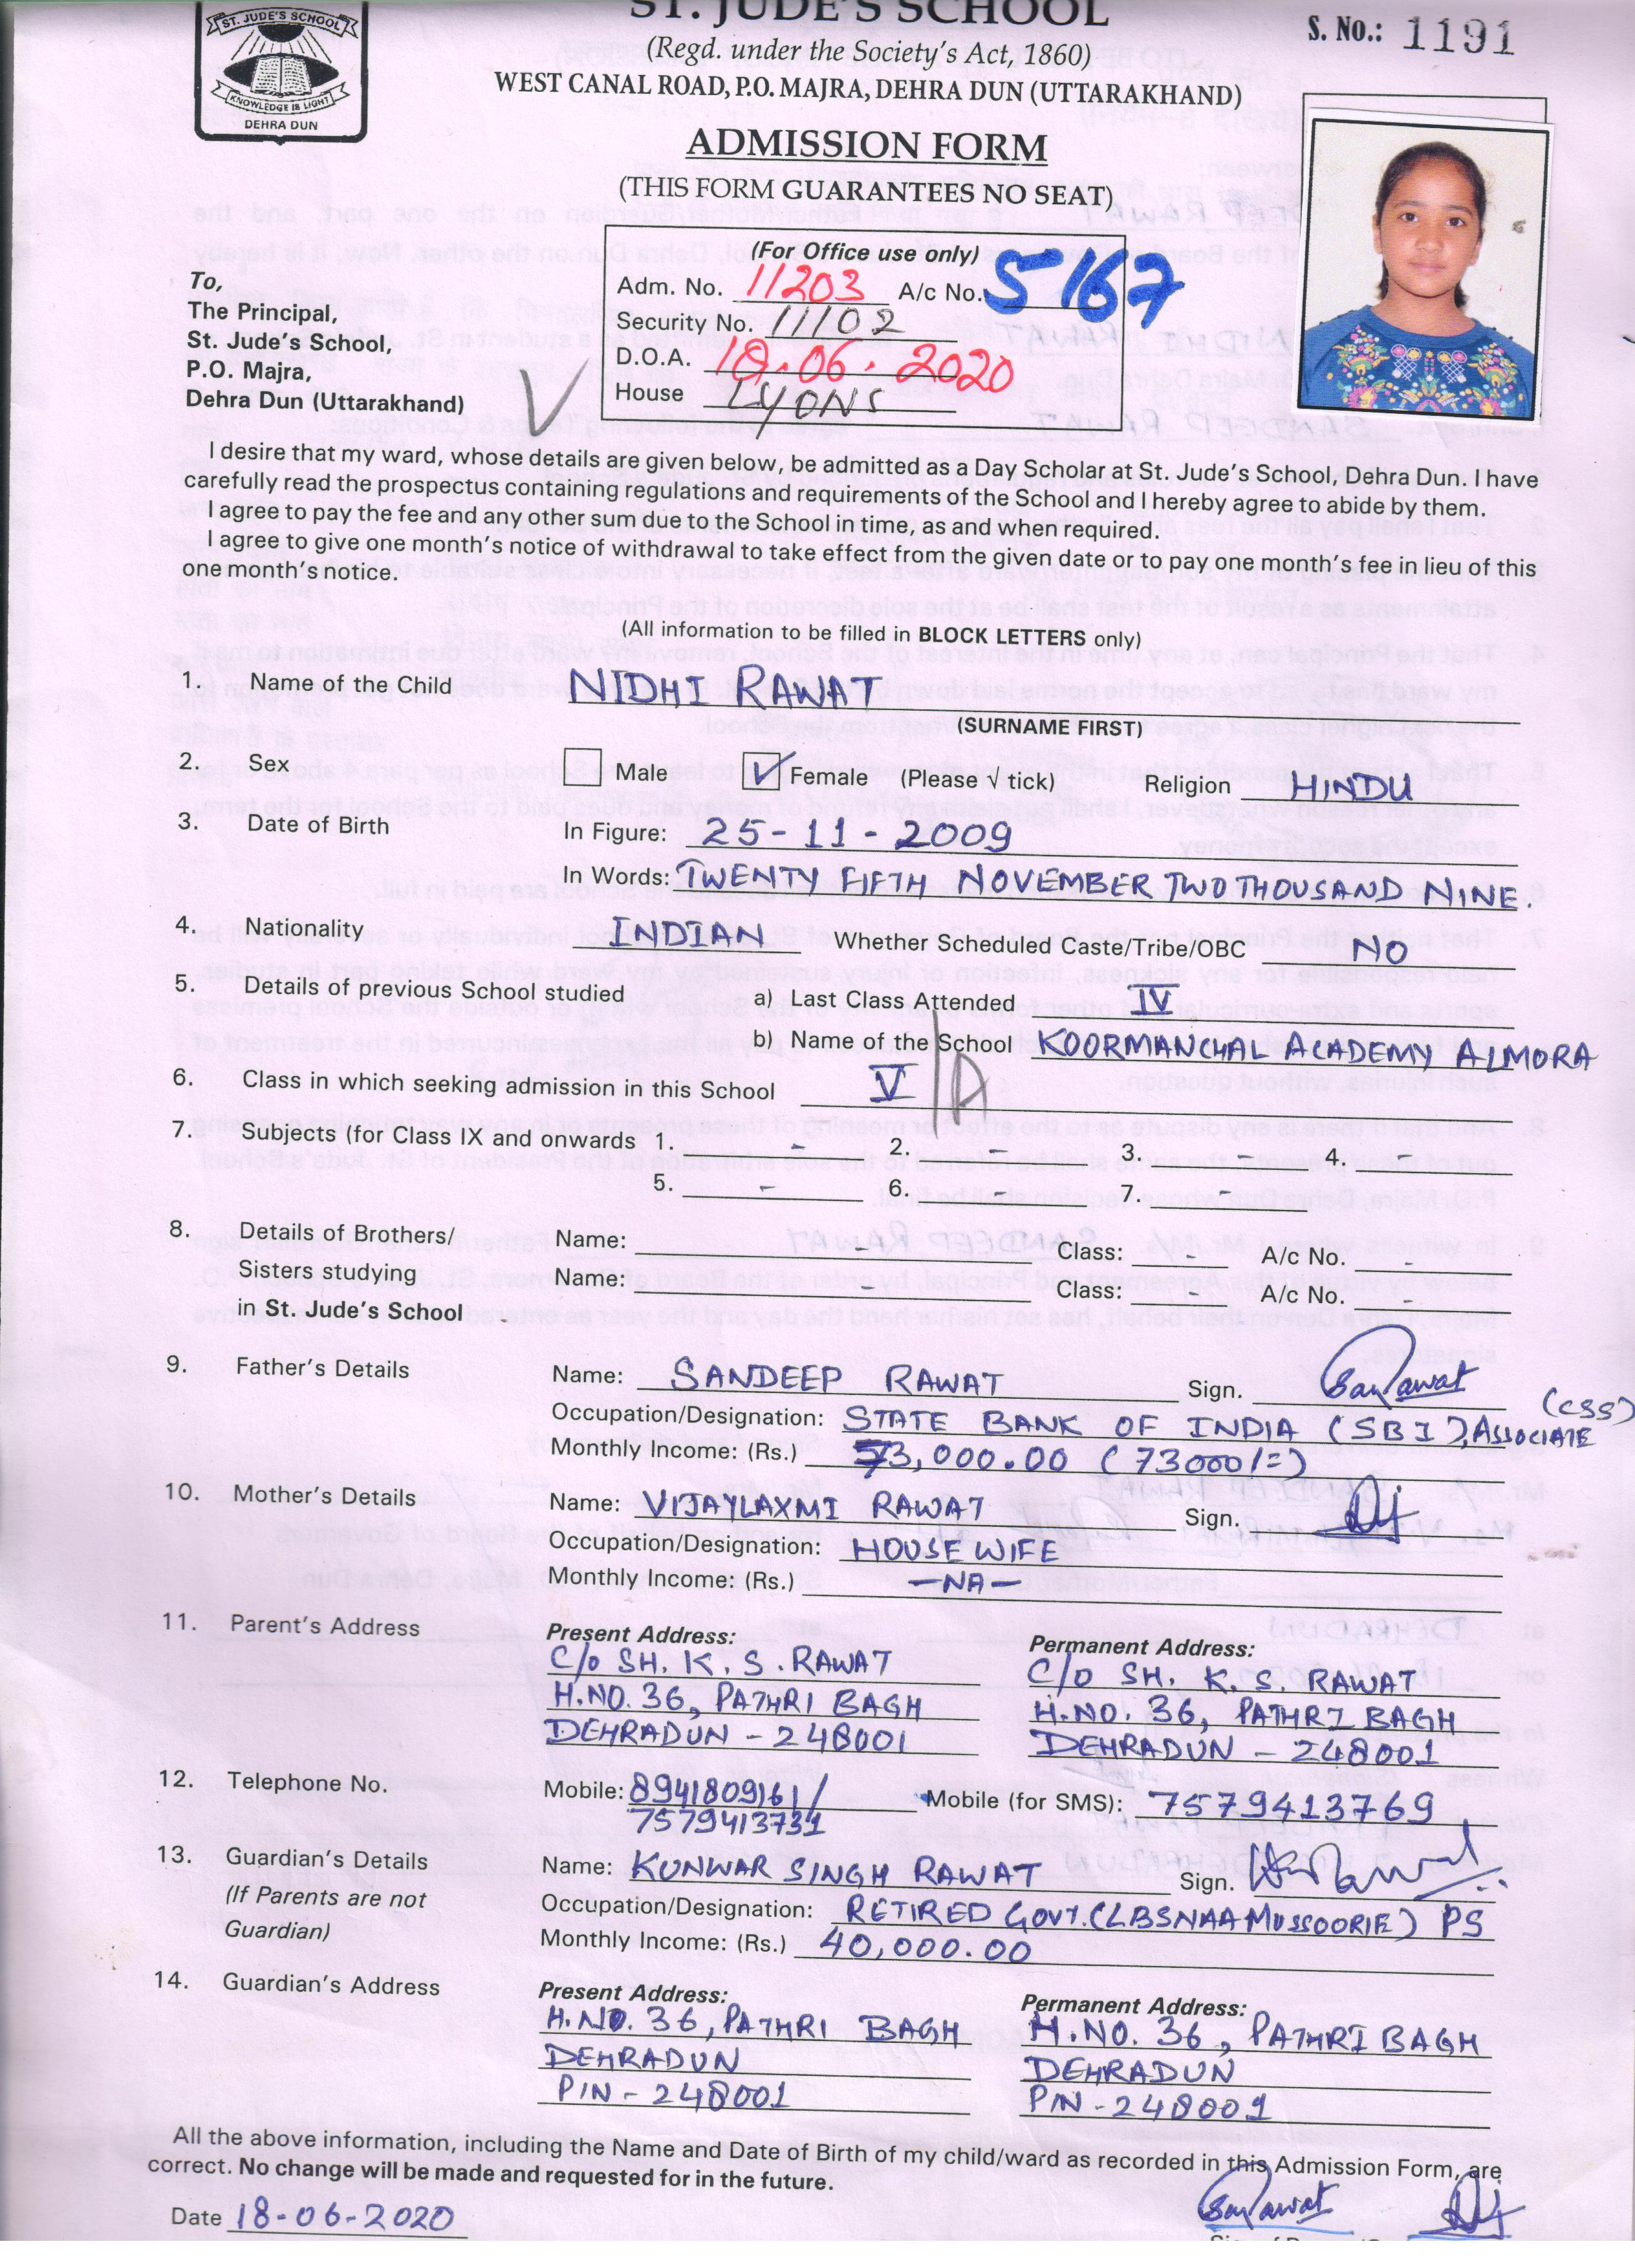 ST. JUDE'S SCHOOL
KNOWLEDGE IS LIGHT
DEHRA DUN
ST. JUDE'S SCHOOL
(Regd. under the Society's Act, 1860)
WEST CANAL ROAD, P.O. MAJRA, DEHRA DUN (UTTARAKHAND)
S. No.: 1191
ADMISSION FORM
(THIS FORM GUARANTEES NO SEAT)
(For Office use only)
Adm. No. 11203 A/c No. 5167
Security No. 11102
D.O.A. 18.06.2020
House LYONS
To,
The Principal,
St. Jude's School,
P.O. Majra,
Dehra Dun (Uttarakhand)
I desire that my ward, whose details are given below, be admitted as a Day Scholar at St. Jude's School, Dehra Dun. I have
carefully read the prospectus containing regulations and requirements of the School and I hereby agree to abide by them.
I agree to pay the fee and any other sum due to the School in time, as and when required.
I agree to give one month's notice of withdrawal to take effect from the given date or to pay one month's fee in lieu of this
one month's notice.
(All information to be filled in BLOCK LETTERS only)
1. Name of the Child NIDHI RAWAT
(SURNAME FIRST)
2. Sex Male ✓ Female (Please √ tick) Religion HINDU
3. Date of Birth In Figure: 25-11-2009
In Words: TWENTY FIFTH NOVEMBER TWO THOUSAND NINE.
4. Nationality INDIAN Whether Scheduled Caste/Tribe/OBC NO
5. Details of previous School studied a) Last Class Attended IV
b) Name of the School KOORMANCHAL ACADEMY ALMORA
6. Class in which seeking admission in this School V A
7. Subjects (for Class IX and onwards 1. - 2. - 3. - 4. -
5. - 6. - 7. -
8. Details of Brothers/ Name: - Class: - A/c No. -
Sisters studying Name: - Class: - A/c No. -
in St. Jude's School
9. Father's Details Name: SANDEEP RAWAT Sign.
Occupation/Designation: STATE BANK OF INDIA (SBI), ASSOCIATE (CSS)
Monthly Income: (Rs.) 73,000.00 (73000/=)
10. Mother's Details Name: VIJAYLAXMI RAWAT Sign.
Occupation/Designation: HOUSE WIFE
Monthly Income: (Rs.) -NA-
11. Parent's Address Present Address: Permanent Address:
C/O SH. K. S. RAWAT C/O SH. K. S. RAWAT
H.NO. 36, PATHRI BAGH H.NO. 36, PATHRI BAGH
DEHRADUN - 248001 DEHRADUN - 248001
12. Telephone No. Mobile: 8941809161/ Mobile (for SMS): 7579413769
7579413731
13. Guardian's Details Name: KUNWAR SINGH RAWAT Sign.
(If Parents are not Occupation/Designation: RETIRED GOVT. (LBSNAA MUSSOORIE) PS
Guardian) Monthly Income: (Rs.) 40,000.00
14. Guardian's Address Present Address: Permanent Address:
H.NO. 36, PATHRI BAGH H.NO. 36, PATHRI BAGH
DEHRADUN DEHRADUN
PIN - 248001 PIN - 248001
All the above information, including the Name and Date of Birth of my child/ward as recorded in this Admission Form, are
correct. No change will be made and requested for in the future.
Date 18-06-2020